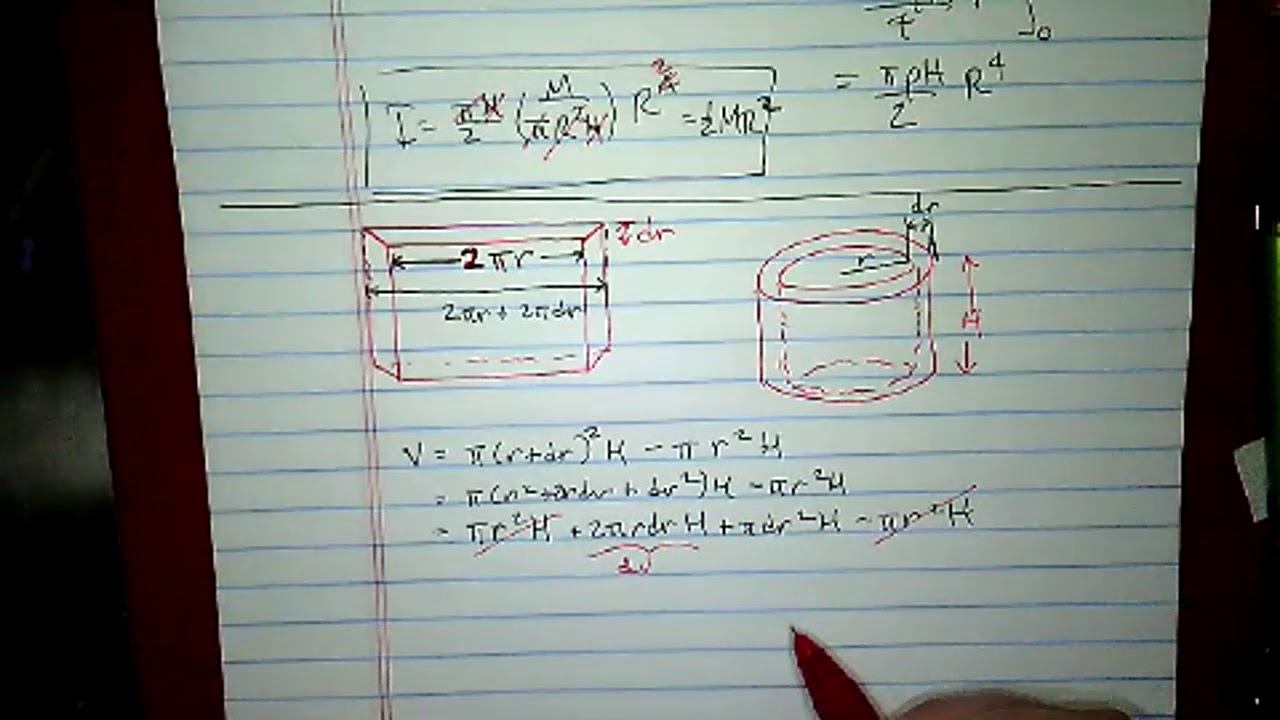 τ ]₀
I = πH/2 (M/πR²H) R⁴² = ½MR²
= πρH/2 R⁴
dr
I dr
2πr
r
2πr + 2πdr
H
V = π(r+dr)²H - πr²H
= π(r²+2rdr + dr²)H - πr²H
= πr²H + 2πrdrH + πdr²H - πr²H
dV